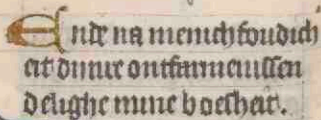 Ende na menichfoudich
eit dinre ontfarmenissen
delighe mine boesheit.